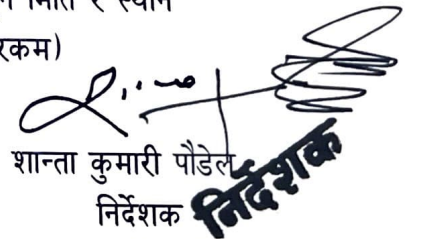 मिति र स्थान
रकम)
शान्ता कुमारी पौडेल
निर्देशक
निर्देशक